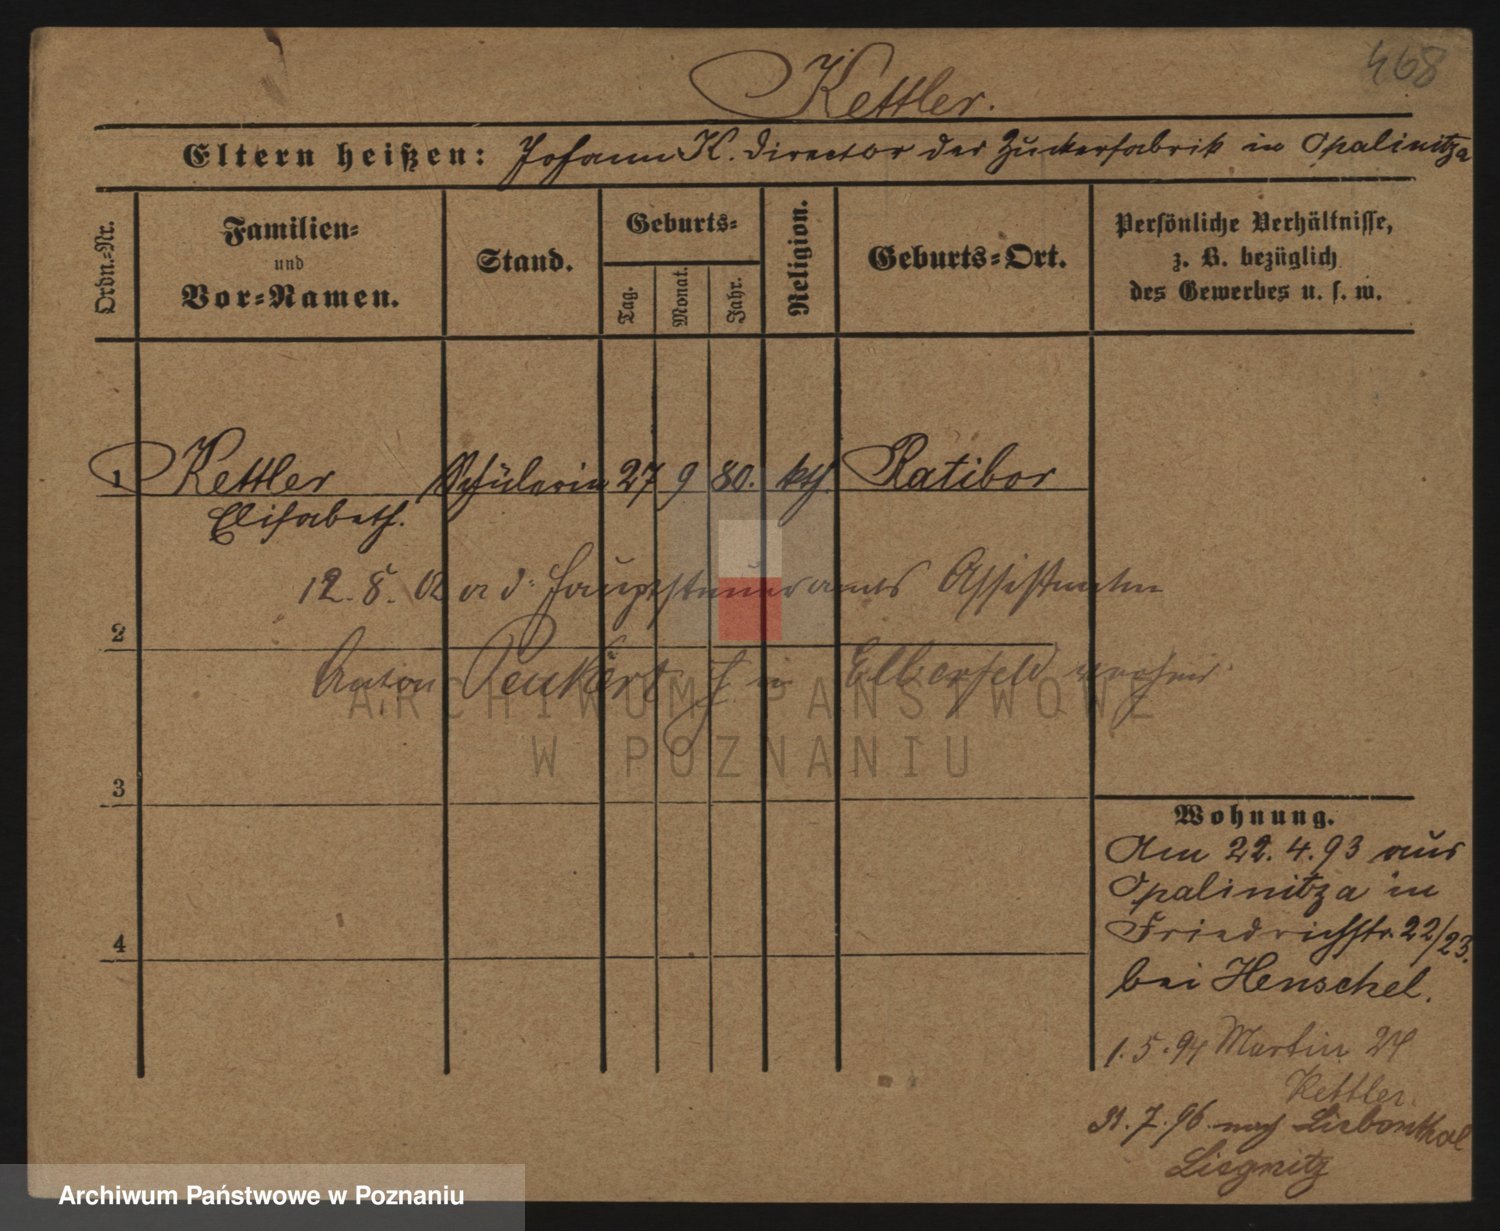 468
Kettler.
Eltern heißen: Johann K. Director der Zuckerfabrik in Opalinitza
Ordn.-Nr.
Familien-
und
Vor-Namen.
Stand.
Geburts-
Tag.
Monat.
Jahr.
Religion.
Geburts-Ort.
Persönliche Verhältnisse,
z. B. bezüglich
des Gewerbes u. s. w.
1 Kettler Schülerin 27 9 80. kth. Ratibor
Elisabeth.
12. 8. 02 a d. Hauptsteueramts Assistenten
2
Anton Peukert in Elberfeld verheir.
ARCHIWUM PAŃSTWOWE
W POZNANIU
3
4
Wohnung.
Am 22. 4. 93 aus
Opalinitza in
Friedrichstr. 22/23.
bei Henschel.
1. 5. 94 Martin 24
Kettler.
31. 7. 96. nach Liebenthal
Liegnitz
Archiwum Państwowe w Poznaniu